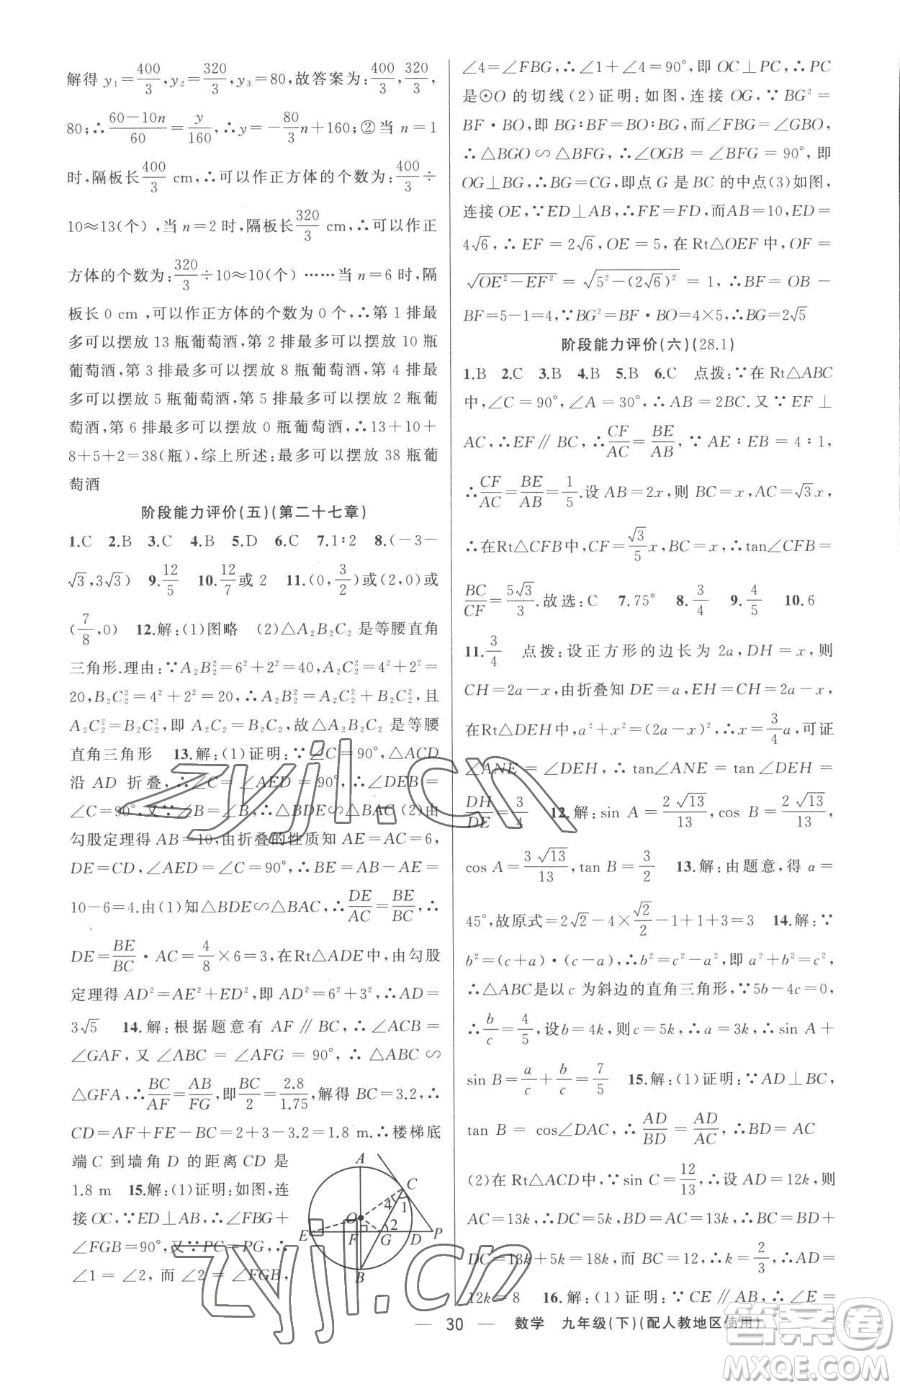 解得 y₁=400/3,y₂=320/3,y₃=80,故答案为:400/3,320/3,
80;∴(60-10n)/60=y/160,∴y=-80/3n+160;②当 n=1
时,隔板长400/3 cm,∴可以作正方体的个数为:400/3÷
10≈13(个),当 n=2 时,隔板长320/3 cm,∴可以作正
方体的个数为:320/3÷10≈10(个)……当 n=6 时,隔
板长 0 cm,可以作正方体的个数为 0 个,∴第 1 排最
多可以摆放 13 瓶葡萄酒,第 2 排最多可以摆放 10 瓶
葡萄酒,第 3 排最多可以摆放 8 瓶葡萄酒,第 4 排最
多可以摆放 5 瓶葡萄酒,第 5 排最多可以摆放 2 瓶葡
萄酒,第 6 排最多可以摆放 0 瓶葡萄酒,∴13+10+
8+5+2=38(瓶),综上所述:最多可以摆放 38 瓶葡
萄酒
阶段能力评价(五)(第二十七章)
1.C 2.B 3.C 4.B 5.D 6.C 7.1∶2 8.(-3-
√3,3√3) 9.12/5 10.12/7或 2 11.(0,3/2)或(2,0)或
(7/8,0) 12.解:(1)图略 (2)△A₂B₂C₂ 是等腰直角
三角形.理由:∵A₂B₂²=6²+2²=40,A₂C₂²=4²+2²=
20,B₂C₂²=4²+2²=20,∴A₂B₂²=A₂C₂²+B₂C₂²,且
A₂C₂²=B₂C₂²,即 A₂C₂=B₂C₂,故△A₂B₂C₂ 是等腰
直角三角形 13.解:(1)证明:∵∠C=90°,△ACD
沿 AD 折叠,∴∠C=∠AED=90°,∴∠DEB=
∠C=90°,又∵∠B=∠B,∴△BDE∽△BAC(2)由
勾股定理得 AB=10,由折叠的性质知 AE=AC=6,
DE=CD,∠AED=∠C=90°,∴BE=AB-AE=
10-6=4.由(1)知△BDE∽△BAC,∴DE/AC=BE/BC,∴
DE=BE/BC·AC=4/8×6=3,在Rt△ADE中,由勾股
定理得 AD²=AE²+ED²,即 AD²=6²+3²,∴AD=
3√5 14.解:根据题意有 AF∥BC,∴∠ACB=
∠GAF,又∠ABC=∠AFG=90°,∴△ABC∽
△GFA,∴BC/AF=AB/FG,即BC/2=2.8/1.75,解得 BC=3.2,∴
CD=AF+FE-BC=2+3-3.2=1.8 m.∴楼梯底
端 C 到墙角 D 的距离 CD 是
1.8 m 15.解:(1)证明:如图,连
接 OC,∵ED⊥AB,∴∠FBG+
∠FGB=90°,又∵PC=PG,∴
∠1=∠2,而∠2=∠FGB,
A
C
4
1
O
2
E
F
G
D
P
B
∠4=∠FBG,∴∠1+∠4=90°,即 OC⊥PC,∴PC
是⊙O 的切线(2)证明:如图,连接 OG,∵BG²=
BF·BO,即 BG∶BF=BO∶BG,而∠FBG=∠GBO,
∴△BGO∽△BFG,∴∠OGB=∠BFG=90°,即
OG⊥BG,∴BG=CG,即点 G 是 BC 的中点(3)如图,
连接 OE,∵ED⊥AB,∴FE=FD,而AB=10,ED=
4√6,∴EF=2√6,OE=5,在Rt△OEF中,OF=
√(OE²-EF²)=√(5²-(2√6)²)=1,∴BF=OB-
BF=5-1=4,∵BG²=BF·BO=4×5,∴BG=2√5
阶段能力评价(六)(28.1)
1.B 2.C 3.B 4.B 5.B 6.C 点拨:∵在Rt△ABC
中,∠C=90°,∠A=30°,∴AB=2BC.又∵EF⊥
AC,∴EF∥BC,∴CF/AC=BE/AB,∵AE∶EB=4∶1,
∴CF/AC=BE/AB=1/5.设 AB=2x,则 BC=x,AC=√3x,
∴在Rt△CFB中,CF=√3/5x,BC=x,∴tan∠CFB=
BC/CF=5√3/3.故选:C 7.75° 8.3/4 9.4/5 10.6
11.3/4 点拨:设正方形的边长为 2a,DH=x,则
CH=2a-x,由折叠知 DE=a,EH=CH=2a-x,
在Rt△DEH中,a²+x²=(2a-x)²,∴x=3/4a,可证
∠ANE=∠DEH,∴tan∠ANE=tan∠DEH=
DH/DE=3/4 12.解:sin A=2√13/13,cos B=2√13/13,
cos A=3√13/13,tan B=3/2 13.解:由题意,得 α=
45°,故原式=2√2-4×√2/2-1+1+3=3 14.解:∵
b²=(c+a)·(c-a)=c²-a²,即a²+b²=c²,
∴△ABC是以c为斜边的直角三角形,∵5b-4c=0,
∴b/c=4/5,设 b=4k,则c=5k,∴a=3k,∴sin A+
sin B=a/c+b/c=7/5 15.解:(1)证明:∵AD⊥BC,
tan B=cos∠DAC,∴AD/BD=AD/AC,∴AC=BD
(2)在Rt△ACD中,∵sin C=12/13,∴设 AD=12k,则
AC=13k,∴DC=5k,∵AC=BD,∴BD=13k,∴
DC=13k+5k=18k,而 BC=12,∴k=2/3,∴AD=
12k=8 16.解:(1)证明:∵CE∥AB,∴∠E=
30 数学 九年级(下)(配人教地区使用)
zyjl.cn
zyjl.cn
答案圈
MXQE.COM